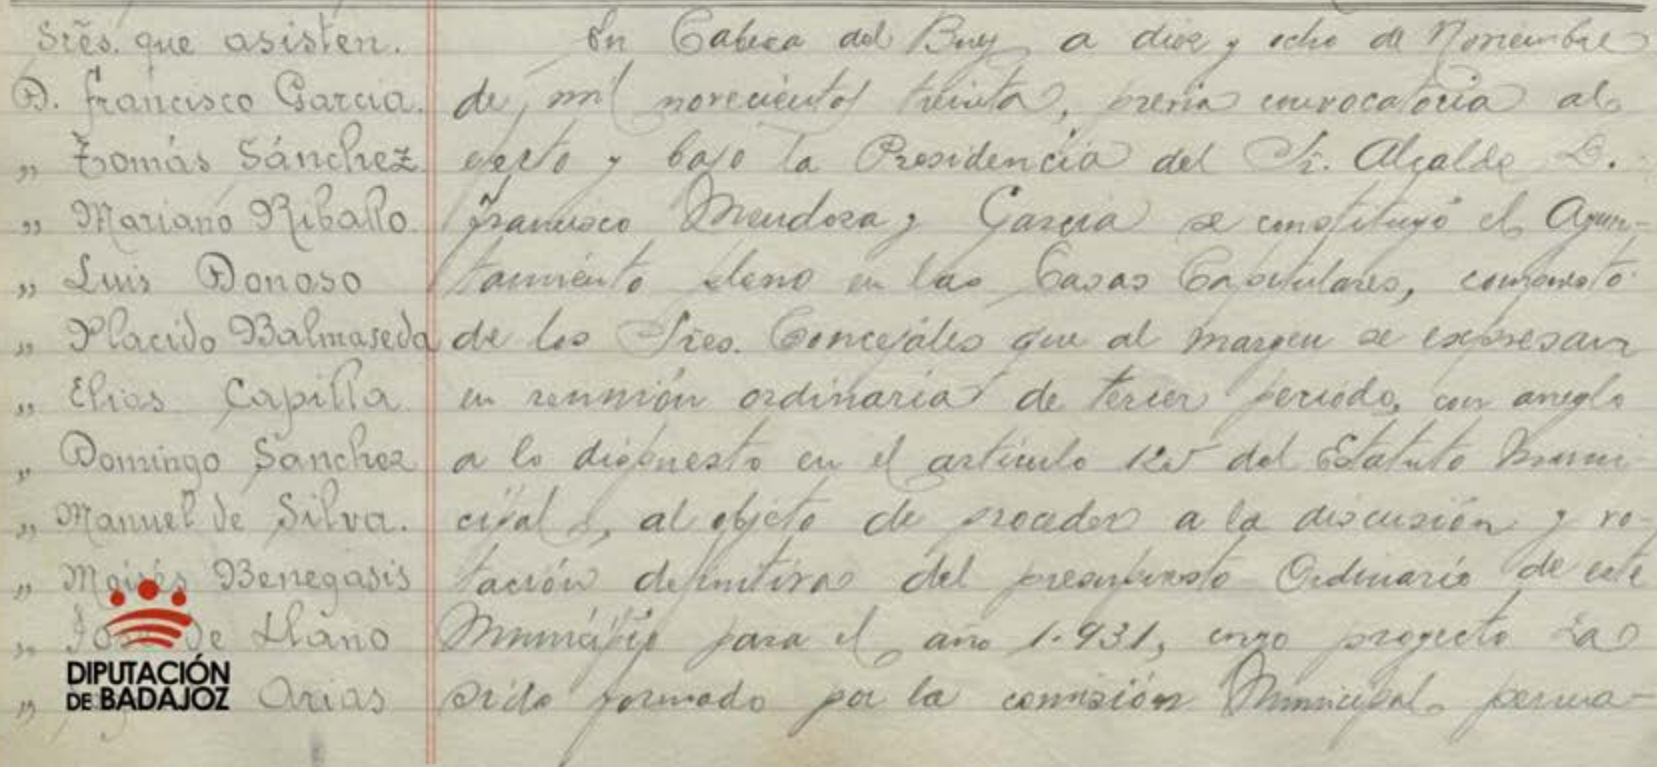 Sres. que asisten.
D. Francisco Garcia.
,, Tomás Sánchez
,, Mariano Riballo
,, Luis Donoso
,, Placido Balmaseda
,, Elias Capilla
,, Domingo Sanchez
,, Manuel de Silva.
,, Moisés Benegasis
,, José de Llano
,, Arias
En Cabeza del Buey a diez y ocho de Noviembre
de mil novecientos treinta, previa convocatoria al
efecto y bajo la Presidencia del Sr. Alcalde D.
Francisco Mendoza y García se constituyó el Ayun-
tamiento pleno en las Casas Capitulares, compuesto
de los Sres. Concejales que al margen se expresan
en reunión ordinaria de tercer periodo, con arreglo
a lo dispuesto en el artículo 125 del Estatuto Muni-
cipal, al objeto de proceder a la discusión y vo-
tación definitiva del presupuesto Ordinario de este
Municipio para el año 1.931, cuyo proyecto ha
sido formado por la comisión Municipal perma-
DIPUTACIÓN
DE BADAJOZ